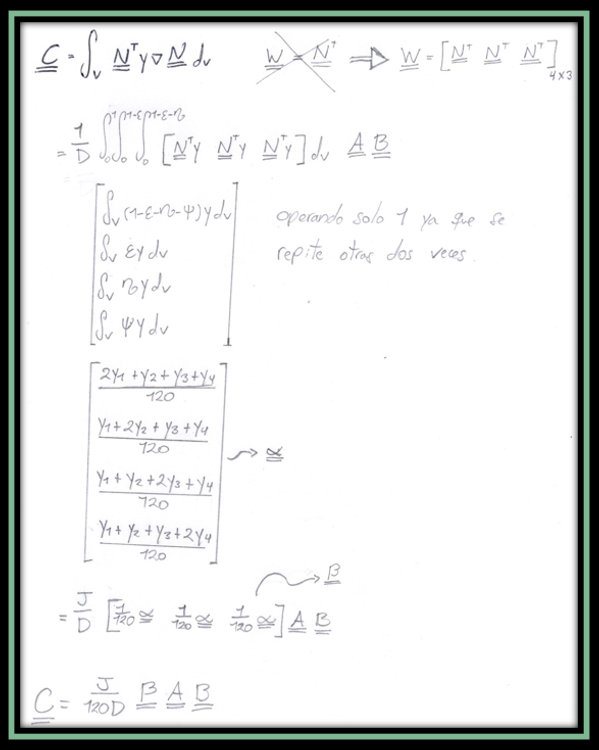 C = ∫ᵥ Nᵀ y ∇ N dv W = Nᵀ ⇒ W = [Nᵀ Nᵀ Nᵀ] 4x3
= 1/D ∫₀¹ ∫₀^(1-ε) ∫₀^(1-ε-η) [Nᵀy Nᵀy Nᵀy] dv A B
∫ᵥ (1-ε-η-ψ) y dv operando solo 1 ya que se
∫ᵥ ε y dv repite otras dos veces.
∫ᵥ η y dv
∫ᵥ ψ y dv
(2y₁ + y₂ + y₃ + y₄)/120
(y₁ + 2y₂ + y₃ + y₄)/120
(y₁ + y₂ + 2y₃ + y₄)/120 → α
(y₁ + y₂ + y₃ + 2y₄)/120
→ β
= J/D [1/120 α 1/120 α 1/120 α] A B
C = J/120D β A B